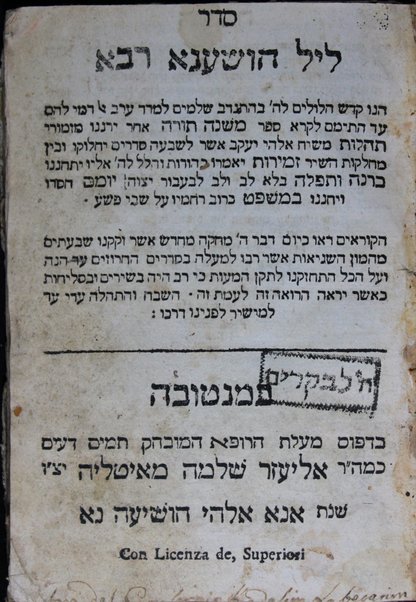 סדר
ליל הושענא רבא
הנו קדש הלולים לה׳ בהתנדב שלמים למדד ערב אל דמי להם
עד התימם לקרא ספר משנה תורה אחר ירננו מזמורי
תהלות משיח אלהי יעקב אשר לשבעה סדרים יחלוקו ובין
מחלקות השיר זמירות יאמרו בהודות והלל לה׳ אליו יתחננו
ברנה ותפלה בלא לב ולב לבעבור יצוה יומם חסדו
ויחננו במשפט כרוב רחמיו על שבי פשע ׃
הקוראים ראו כיום דבר ה׳ מחקה מחדש אשר זקקנו שבעתים
מהמון השגיאות אשר רבו למעלה בסדרים החרוזים עד הנה
ועל הכל התחזקנו לתקן המעות כי רב היה בשירים ובסליחות
כאשר יראה הרואה זה לעמת זה ׃ השבח והתהלה עדי עד
למישיר לפנינו דרכו ׃
ח׳ לבקרים
פמנטובה
בדפוס מעלת הרופא המובהק תמים דעים
כמה״ר אליעזר שלמה מאיטליה יצ״ו
שנת אנא אלהי הושיעה נא
Con Licenza de, Superiori